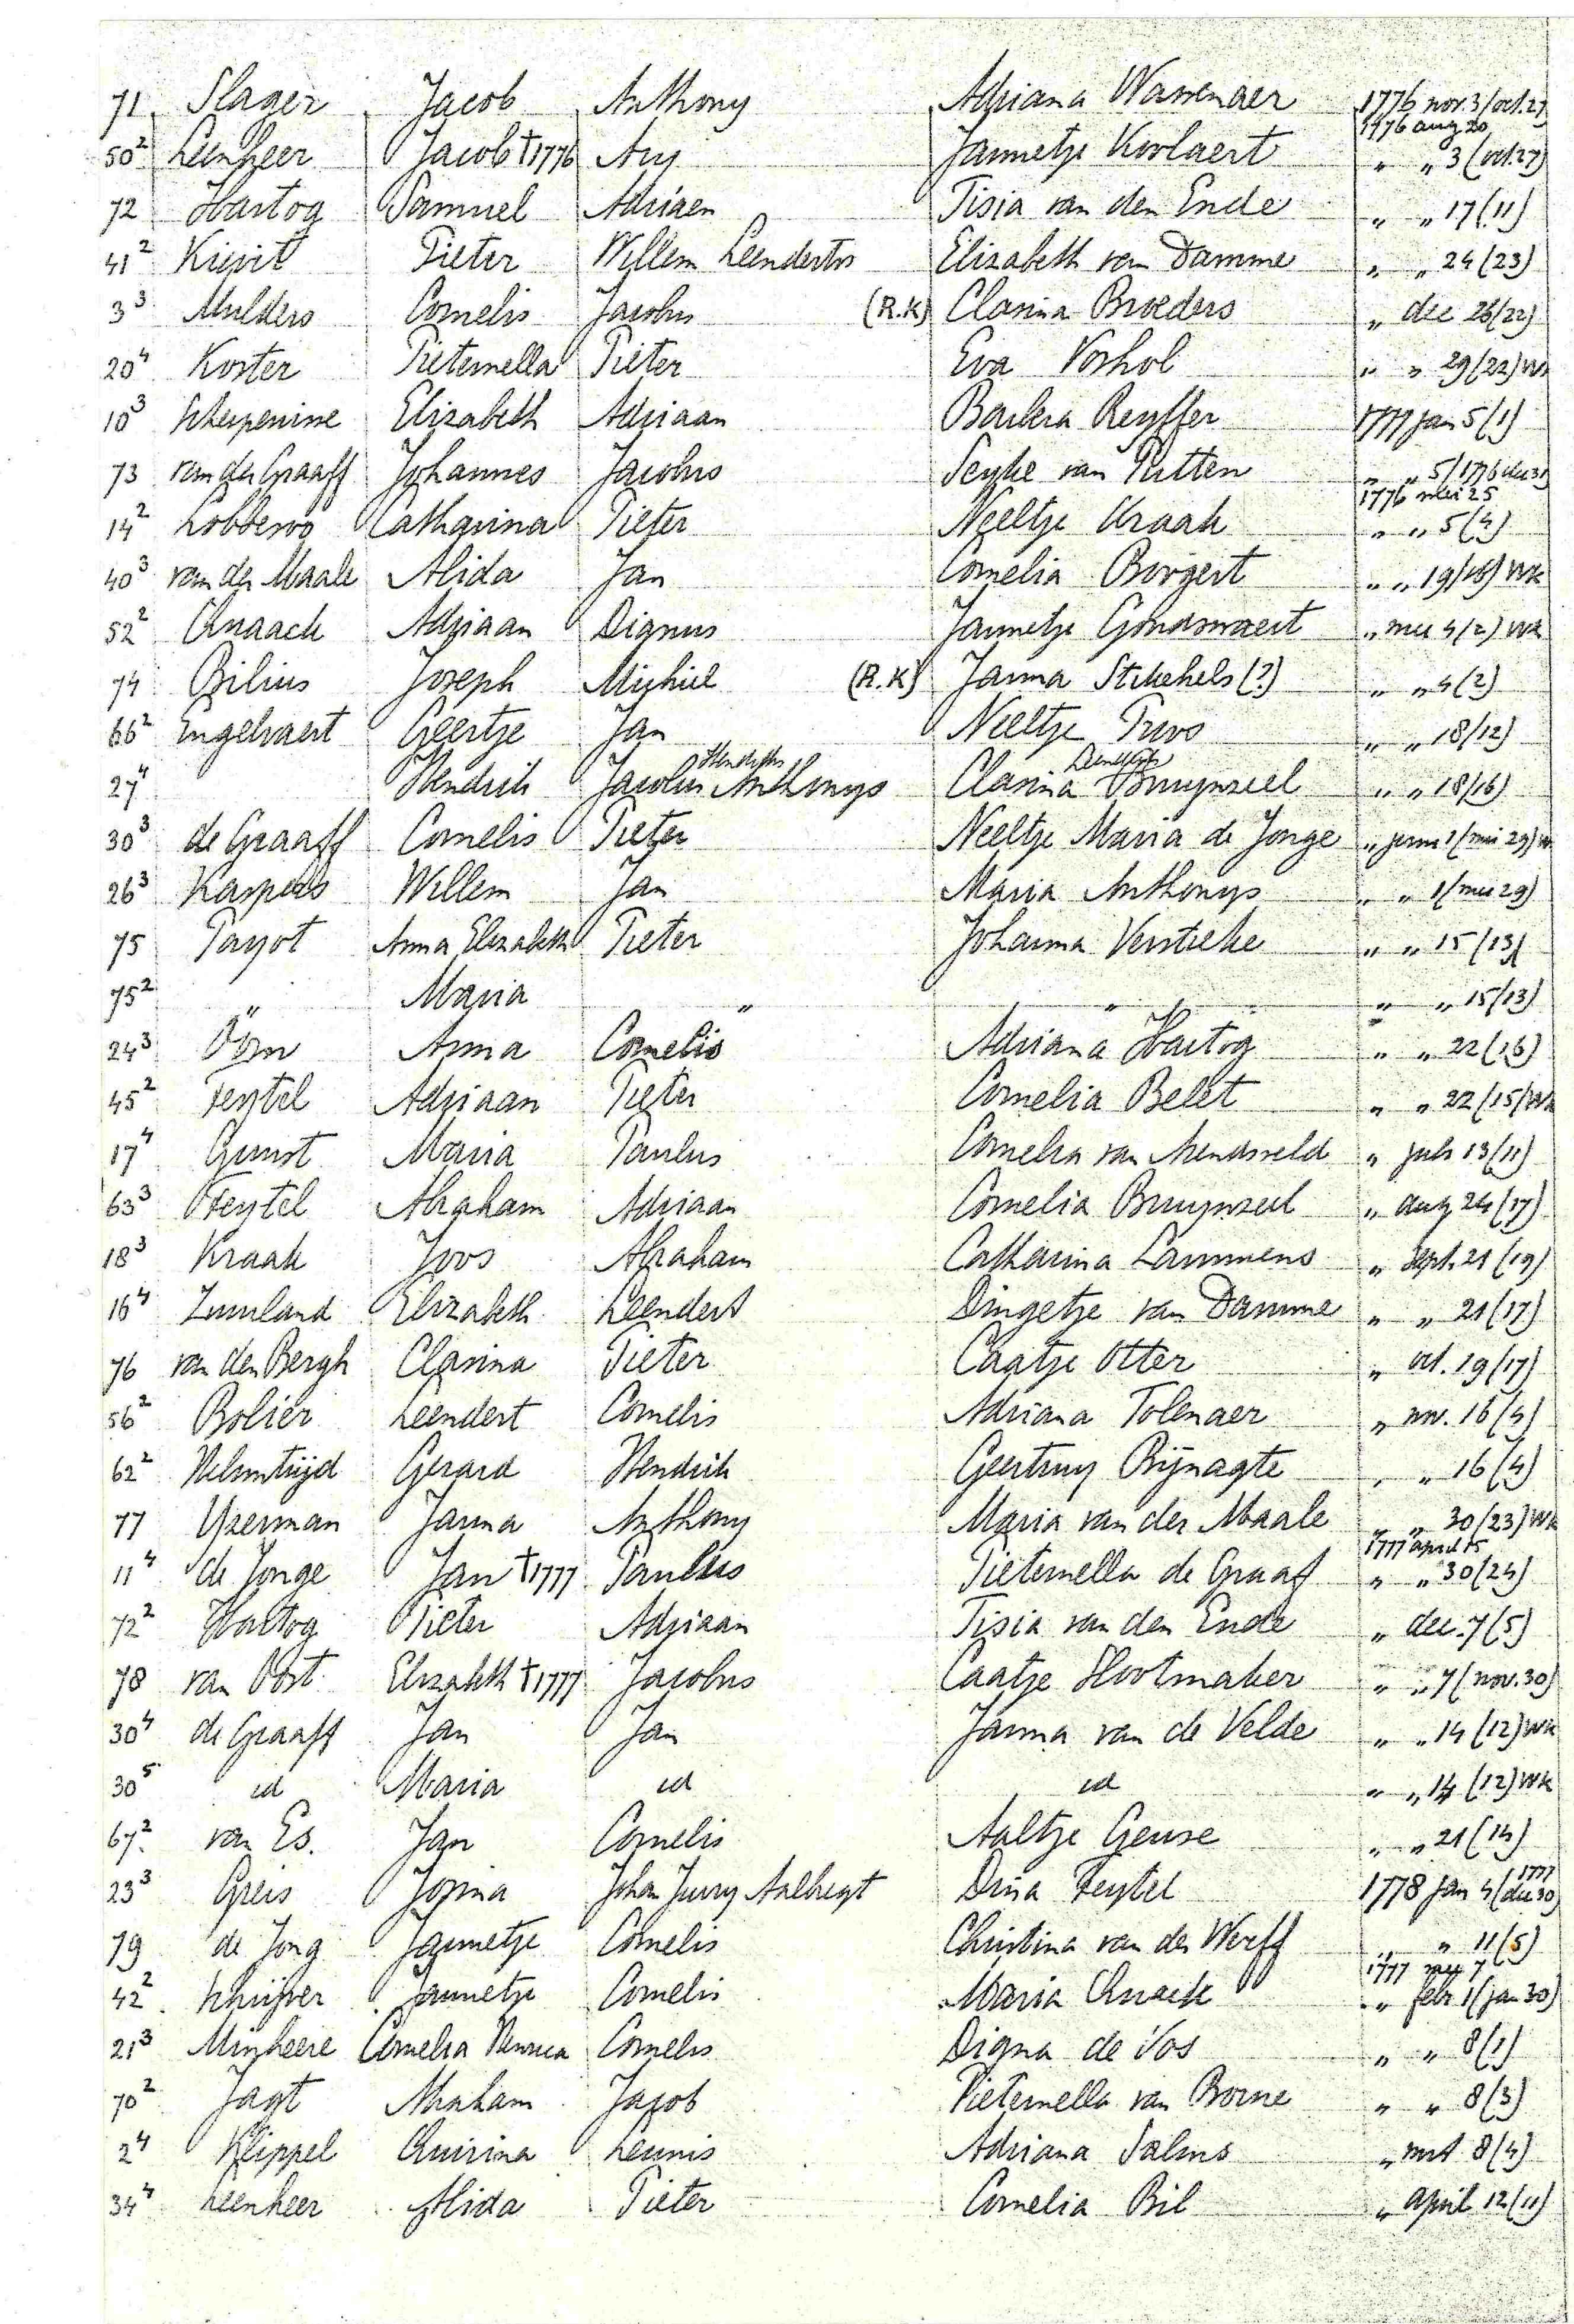 71 Slager Jacob Anthony Adriana Wassenaer 1776 nov. 3/oct. 27
1776 aug 20
50² Leenheer Jacob †1776 Ary Jannetje Koolaert " " 3 (oct. 27)
72 Hartog Samuel Adriaen Tisia van den Ende " " 17 (11)
41² Kievit Pieter Willem Leenderts Elizabeth van Damme " " 24 (23)
3³ Mulders Cornelis Jacobus (R.K) Clasina Broeders " dec 26 (22)
20⁴ Koster Pieternella Pieter Eva Voshol " " 29 (22) Wk
10³ Scherpenisse Elizabeth Adriaan Barbera Reyffer 1777 jan 5 (1)
73 van der Graaff Johannes Jacobus Seyke van Putten " " 5/1776 dec 31
1776 mei 25
14² Lobbezoo Catharina Pieter Neeltje Kraak " " 5 (4)
40³ van der Maale Alida Jan Cornelia Borgert " " 19 (18) Wk
52² Quaack Adriaan Dignus Jannetje Goudswaert " mei 4 (2) Wk
74 Bilius Joseph Michiel (R.K) Janna Stekehels (?) " " 4 (2)
66² Engelvaert Geertje Jan Neeltje Troos " " 18/12)
27⁴ Hendrik Jacobus Hendriks Anthonys Clasina Bruynzeel " " 18/16)
30³ de Graaff Cornelis Pieter Neeltje Maria de Jonge " juni 1 (mei 29) W
26³ Kaspers Willem Jan Maria Anthonys " " 1 (mei 29)
75 Payot Anna Elizabeth Pieter Johanna Verstieke " " 15 (13)
75² " Maria " " " " 15/13)
24³ Oom Anna Cornelis Adriana Hartog " " 22 (16)
45² Feytel Adriaan Pieter Cornelia Belet " " 22 (15) Wk
17⁴ Gunst Maria Paulus Cornelia van Arendsveld " juli 13 (11)
63³ Feytel Abraham Adriaan Cornelia Bruynzeel " aug 24 (17)
18³ Kraak Joos Abraham Catharina Lammens " Sept. 21 (19)
16⁴ Zuurland Elizabeth Leendert Dingetje van Damme " " 21 (17)
76 van den Bergh Clasina Pieter Caatje Otter " oct. 19 (17)
56² Bolier Leendert Cornelis Adriana Tolenaer " nov. 16 (4)
62² Helmstrijd Gerard Hendrik Geertruy Rijnagte " " 16 (4)
77 Yzerman Janna Anthony Maria van der Maale " " 30 (23) Wk
1777 april 15
11⁴ de Jonge Jan †1777 Paulus Pieternella de Graaf " " 30 (24)
72² Hartog Pieter Adriaan Tisia van den Ende " dec. 7 (5)
78 van Oost Elizabeth †1777 Jacobus Caatje Slootmaker " " 7 (nov. 30)
30⁴ de Graaff Jan Jan Janna van de Velde " " 14 (12) Wk
30⁵ id Maria id id " " 14 (12) Wk
67² van Es. Jan Cornelis Aaltje Geuse " " 21 (14)
23³ Greis Jozina Johan Jurry Aalbregt Dina Feytel 1778 jan 4 (1777 dec 30)
79 de Jong Jannetje Cornelis Christina van der Werff " " 11 (5)
1777
42² Schrijver Jannetje Cornelis Maria Quack " febr 1 (jan 30)
21³ Minheere Cornelia Henrica Cornelis Digna de Vos " " 8 (1)
70² Jagt Abraham Jacob Pieternella van Borne " " 8 (3)
2⁴ Klippel Quirina Leunis Adriana Salms " mrt 8 (4)
34⁴ Leenheer Alida Pieter Cornelia Bil " april 12 (11)